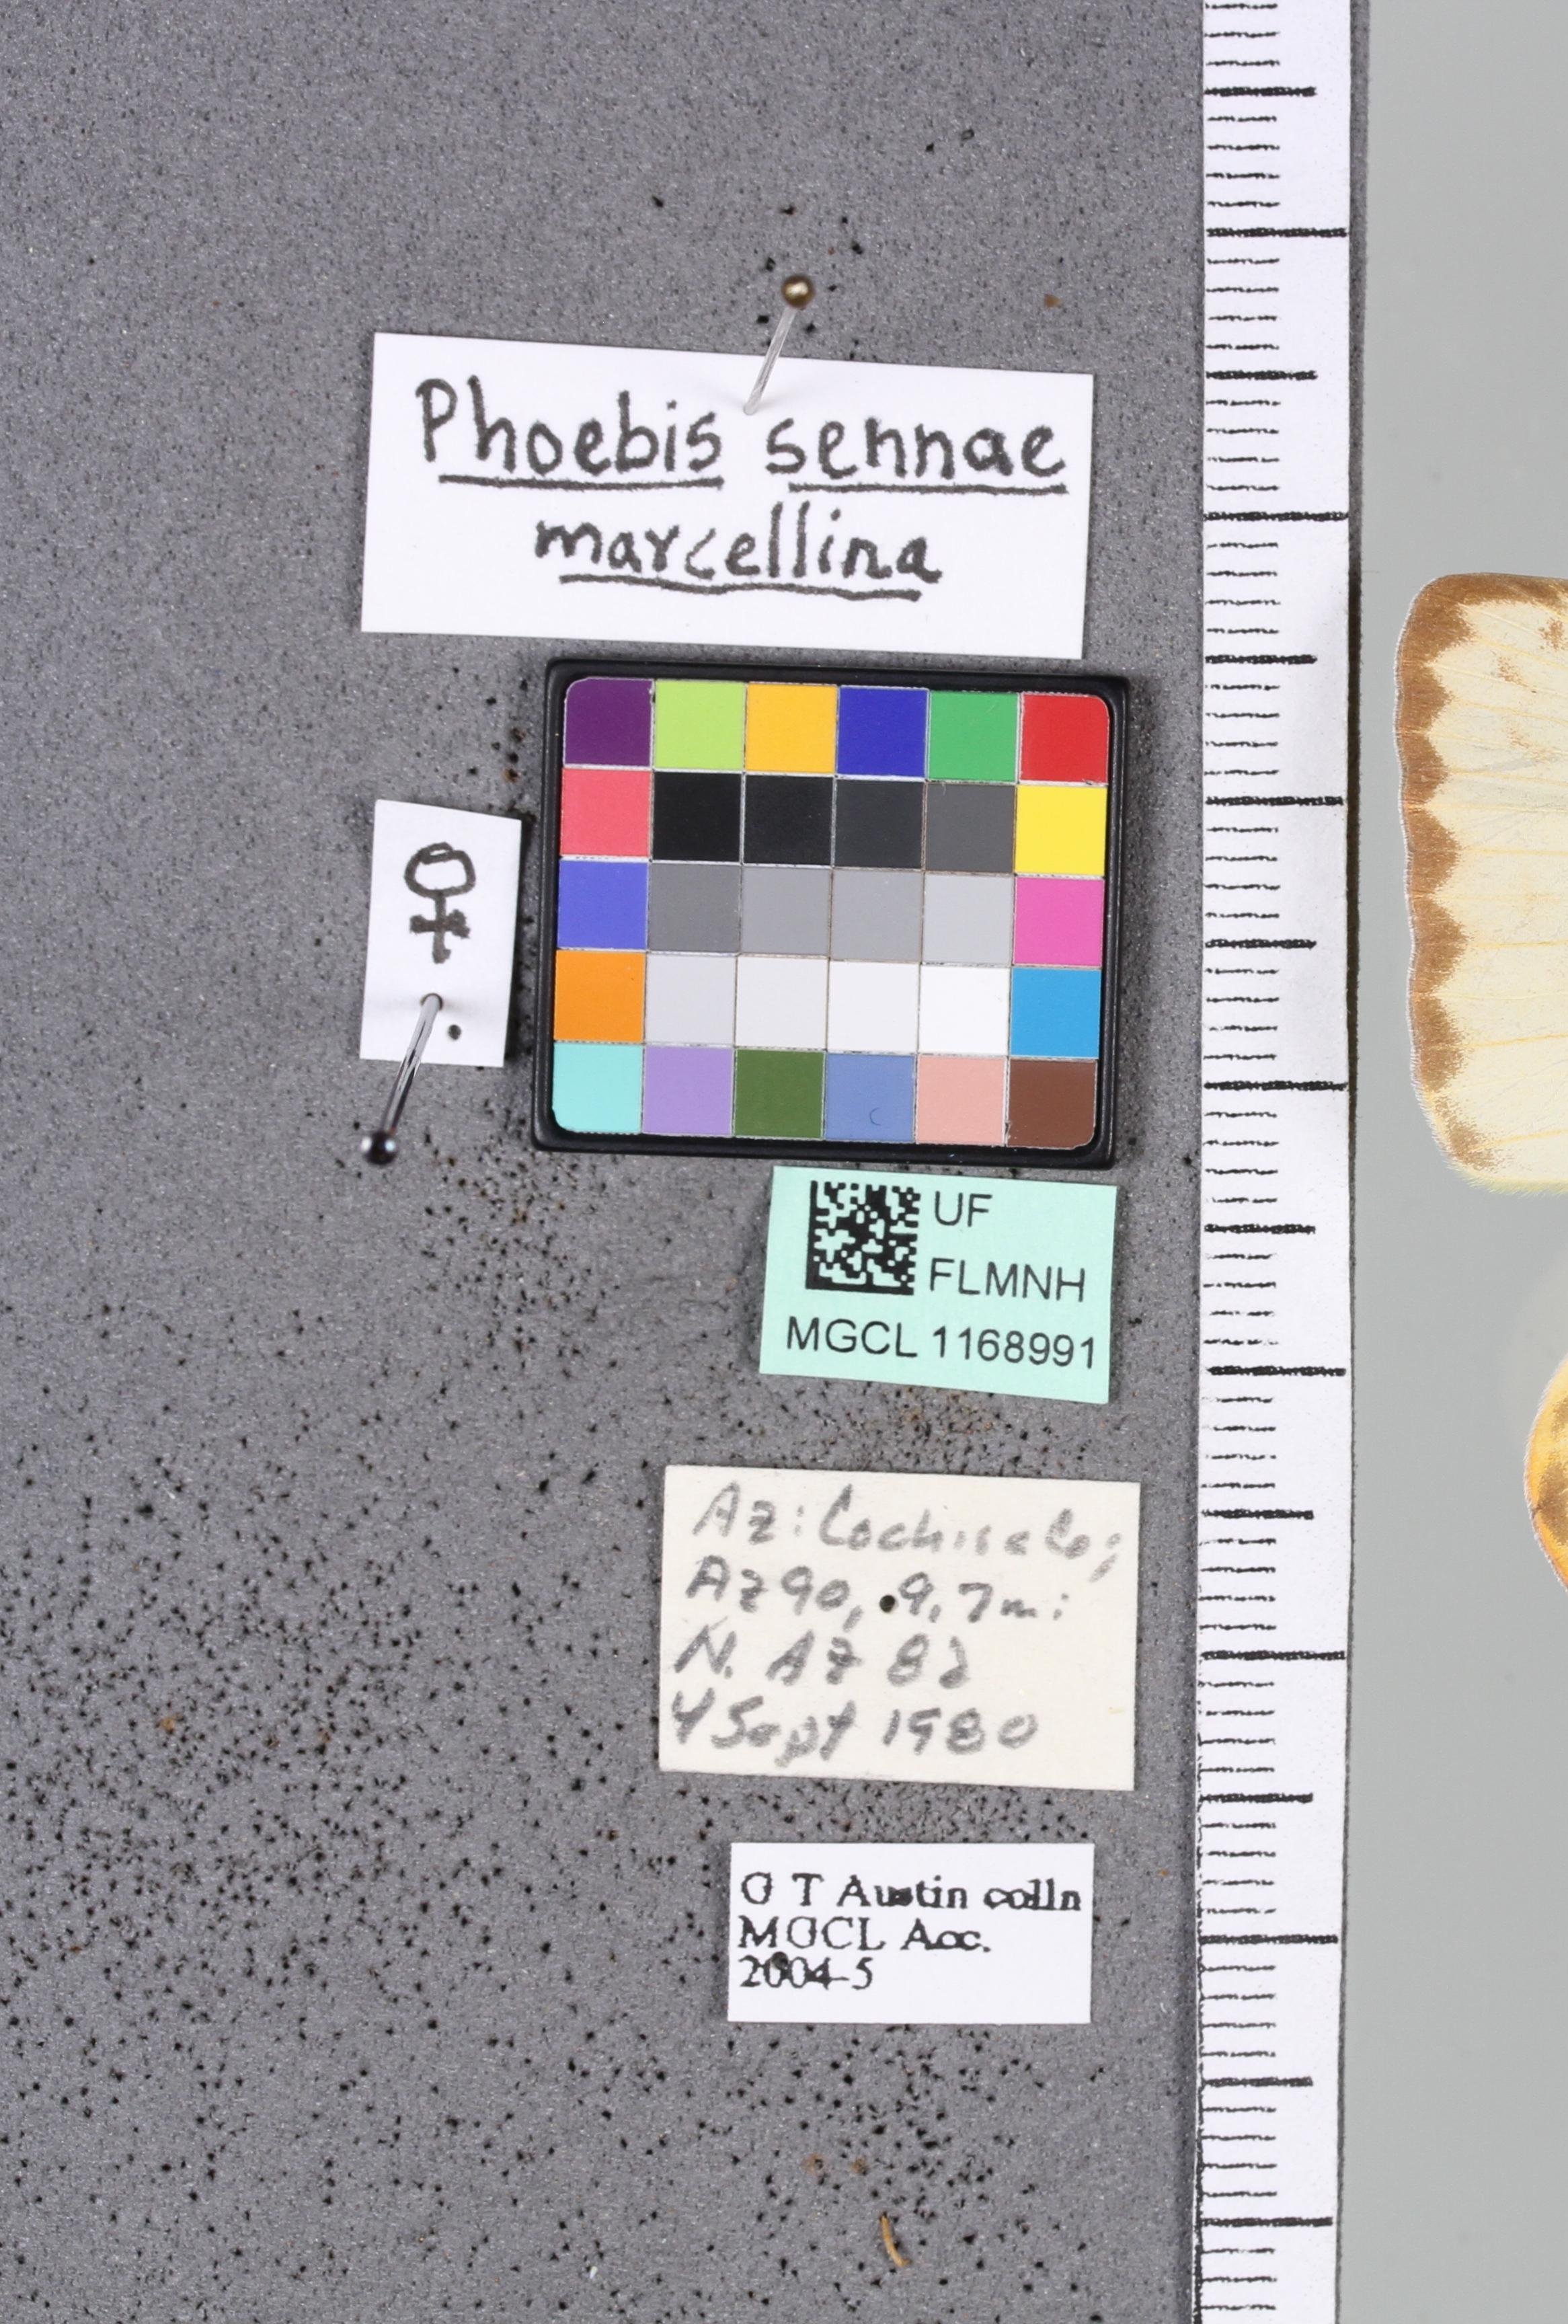 Phoebis sennae
marcellina
♀
UF
FLMNH
MGCL 1168991
Az: Cochise Co;
Az 90, 9.7 mi
N. Az 82
4 Sept 1980
G T Austin colln
MGCL Acc.
2004-5